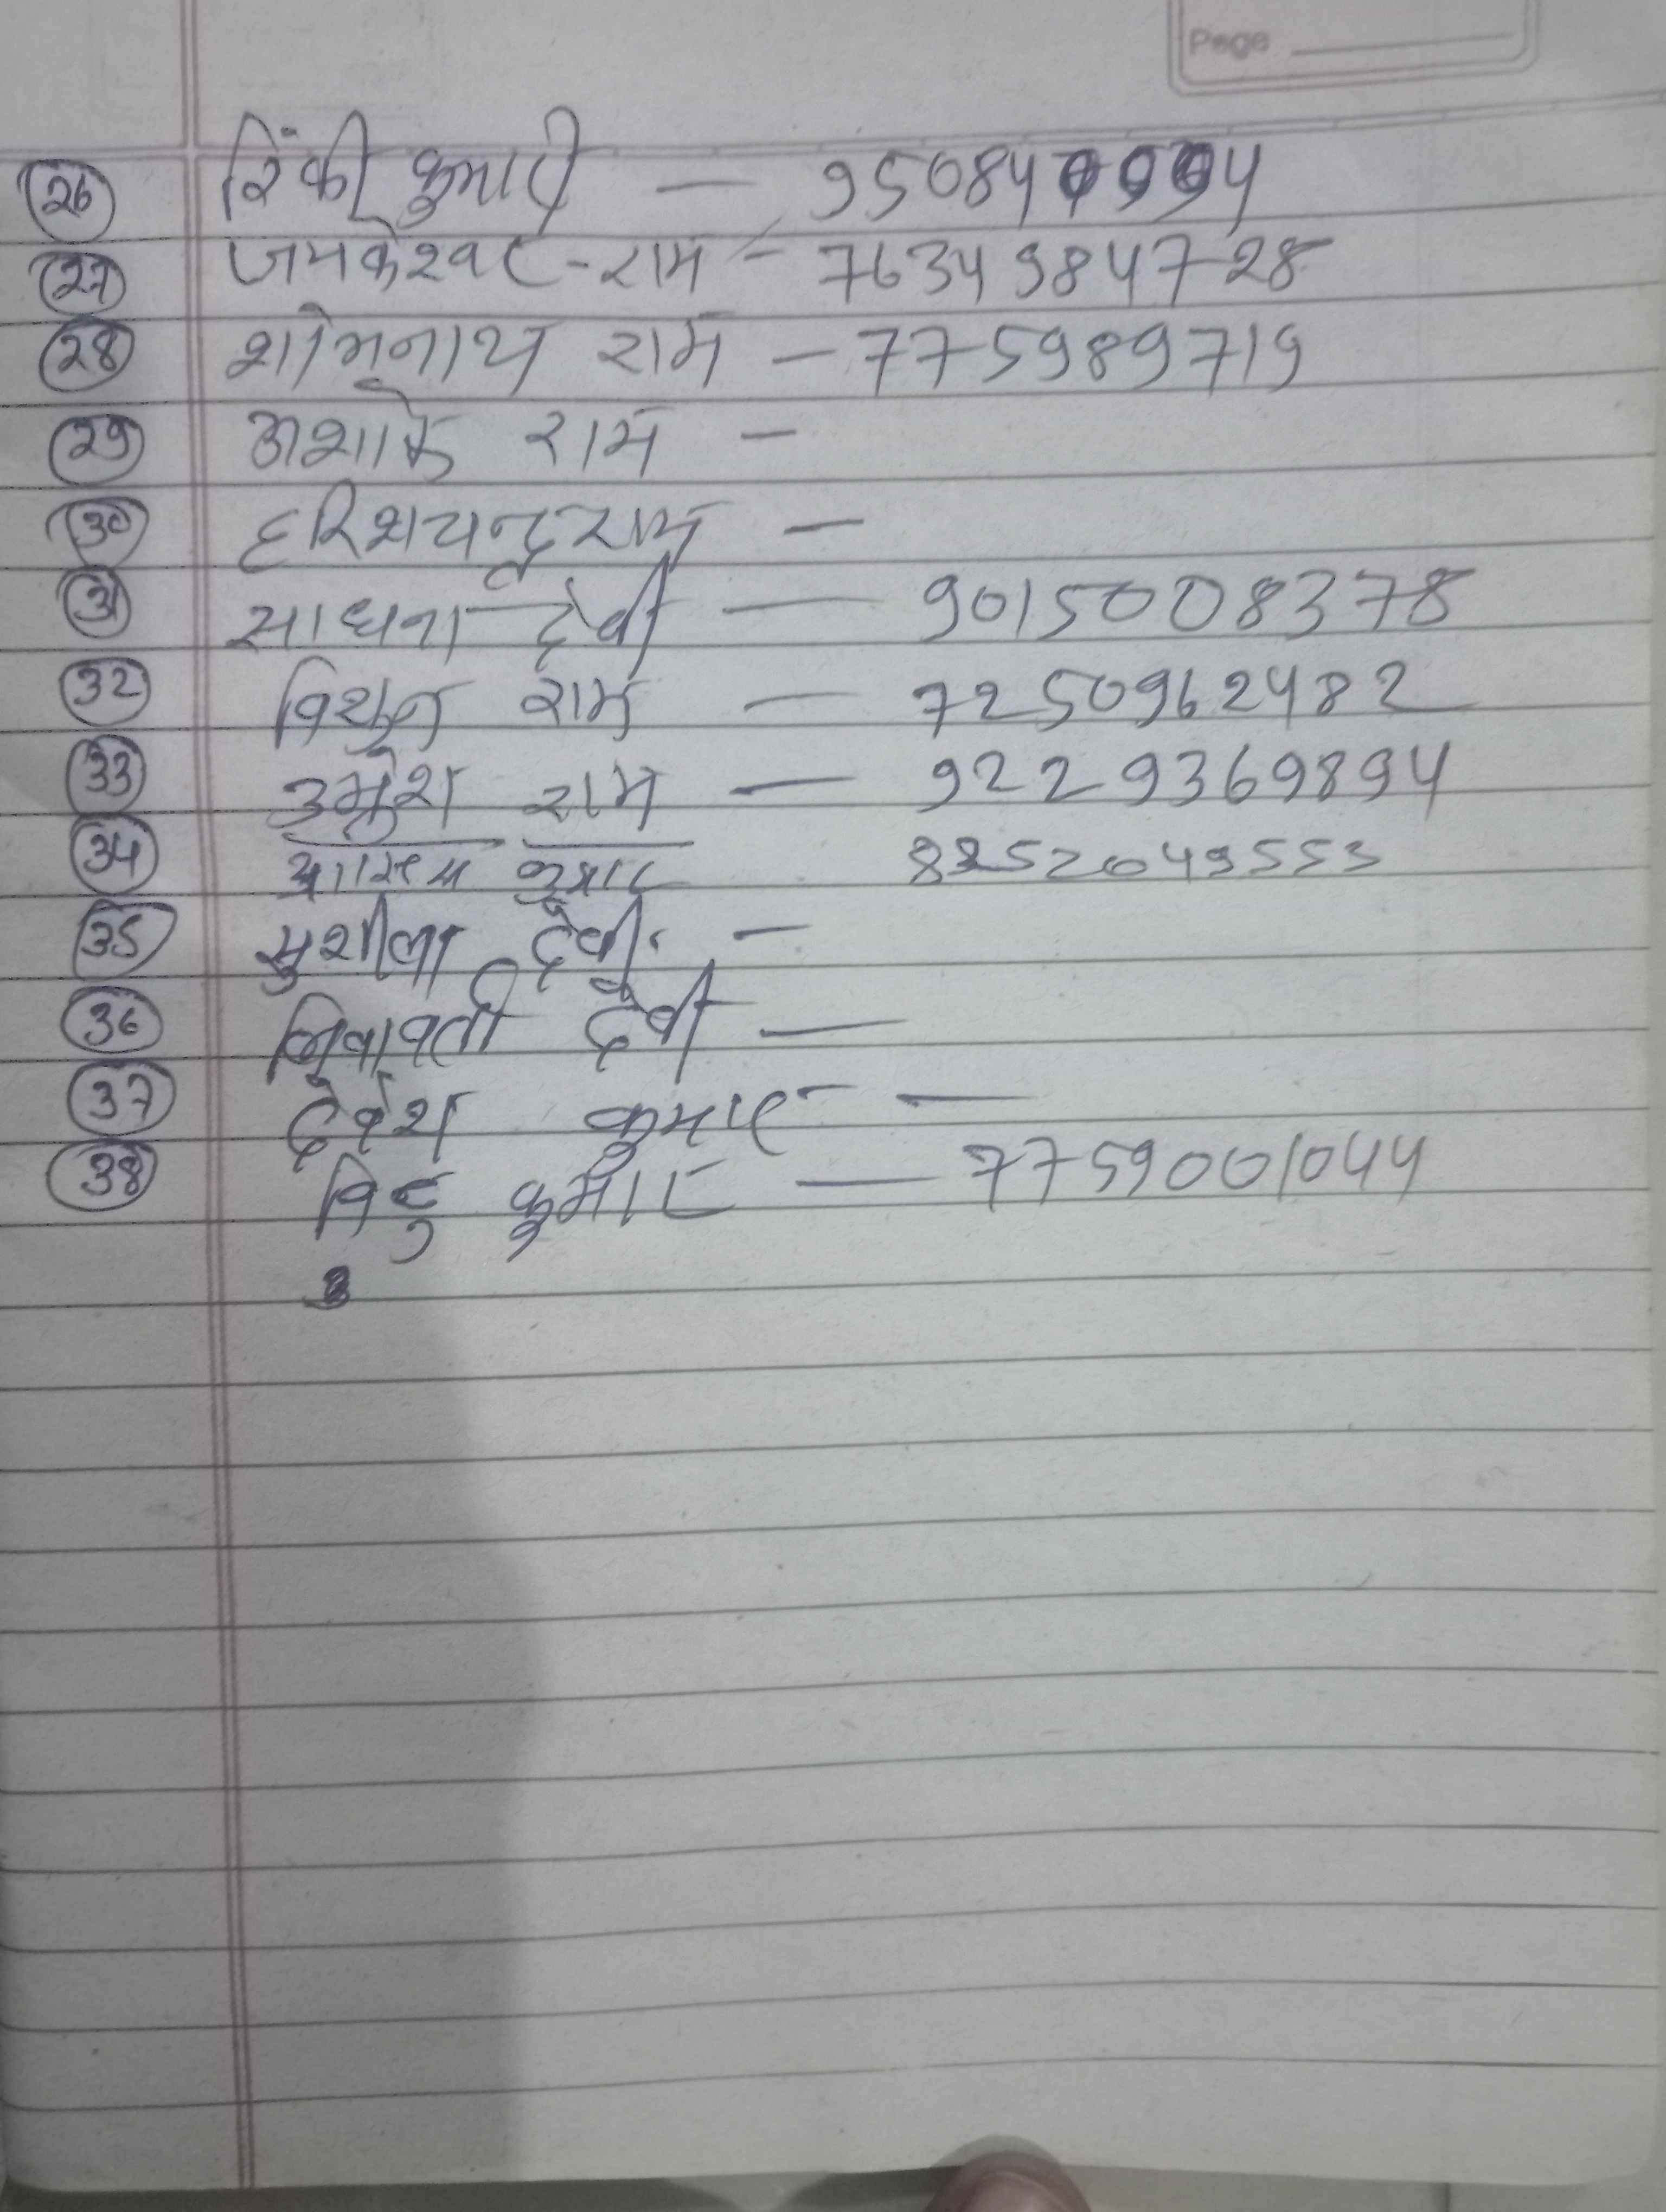 Page
26 रिंकी कुमारी — 95084
27 जमकेश्वर - राम - 7634984728
28 शोमनाथ राम - 7759989719
29 अशोक राम -
30 हरिशचन्द्र राम -
31 साधना देवी — 9015008378
32 विशुन राम — 7250962482
33 उमेश राम — 9229369894
34 कुमार
35 सुशीला देवी. -
36 देवी —
37 देवेश कुमार - —
38 कुमार — 7759001044